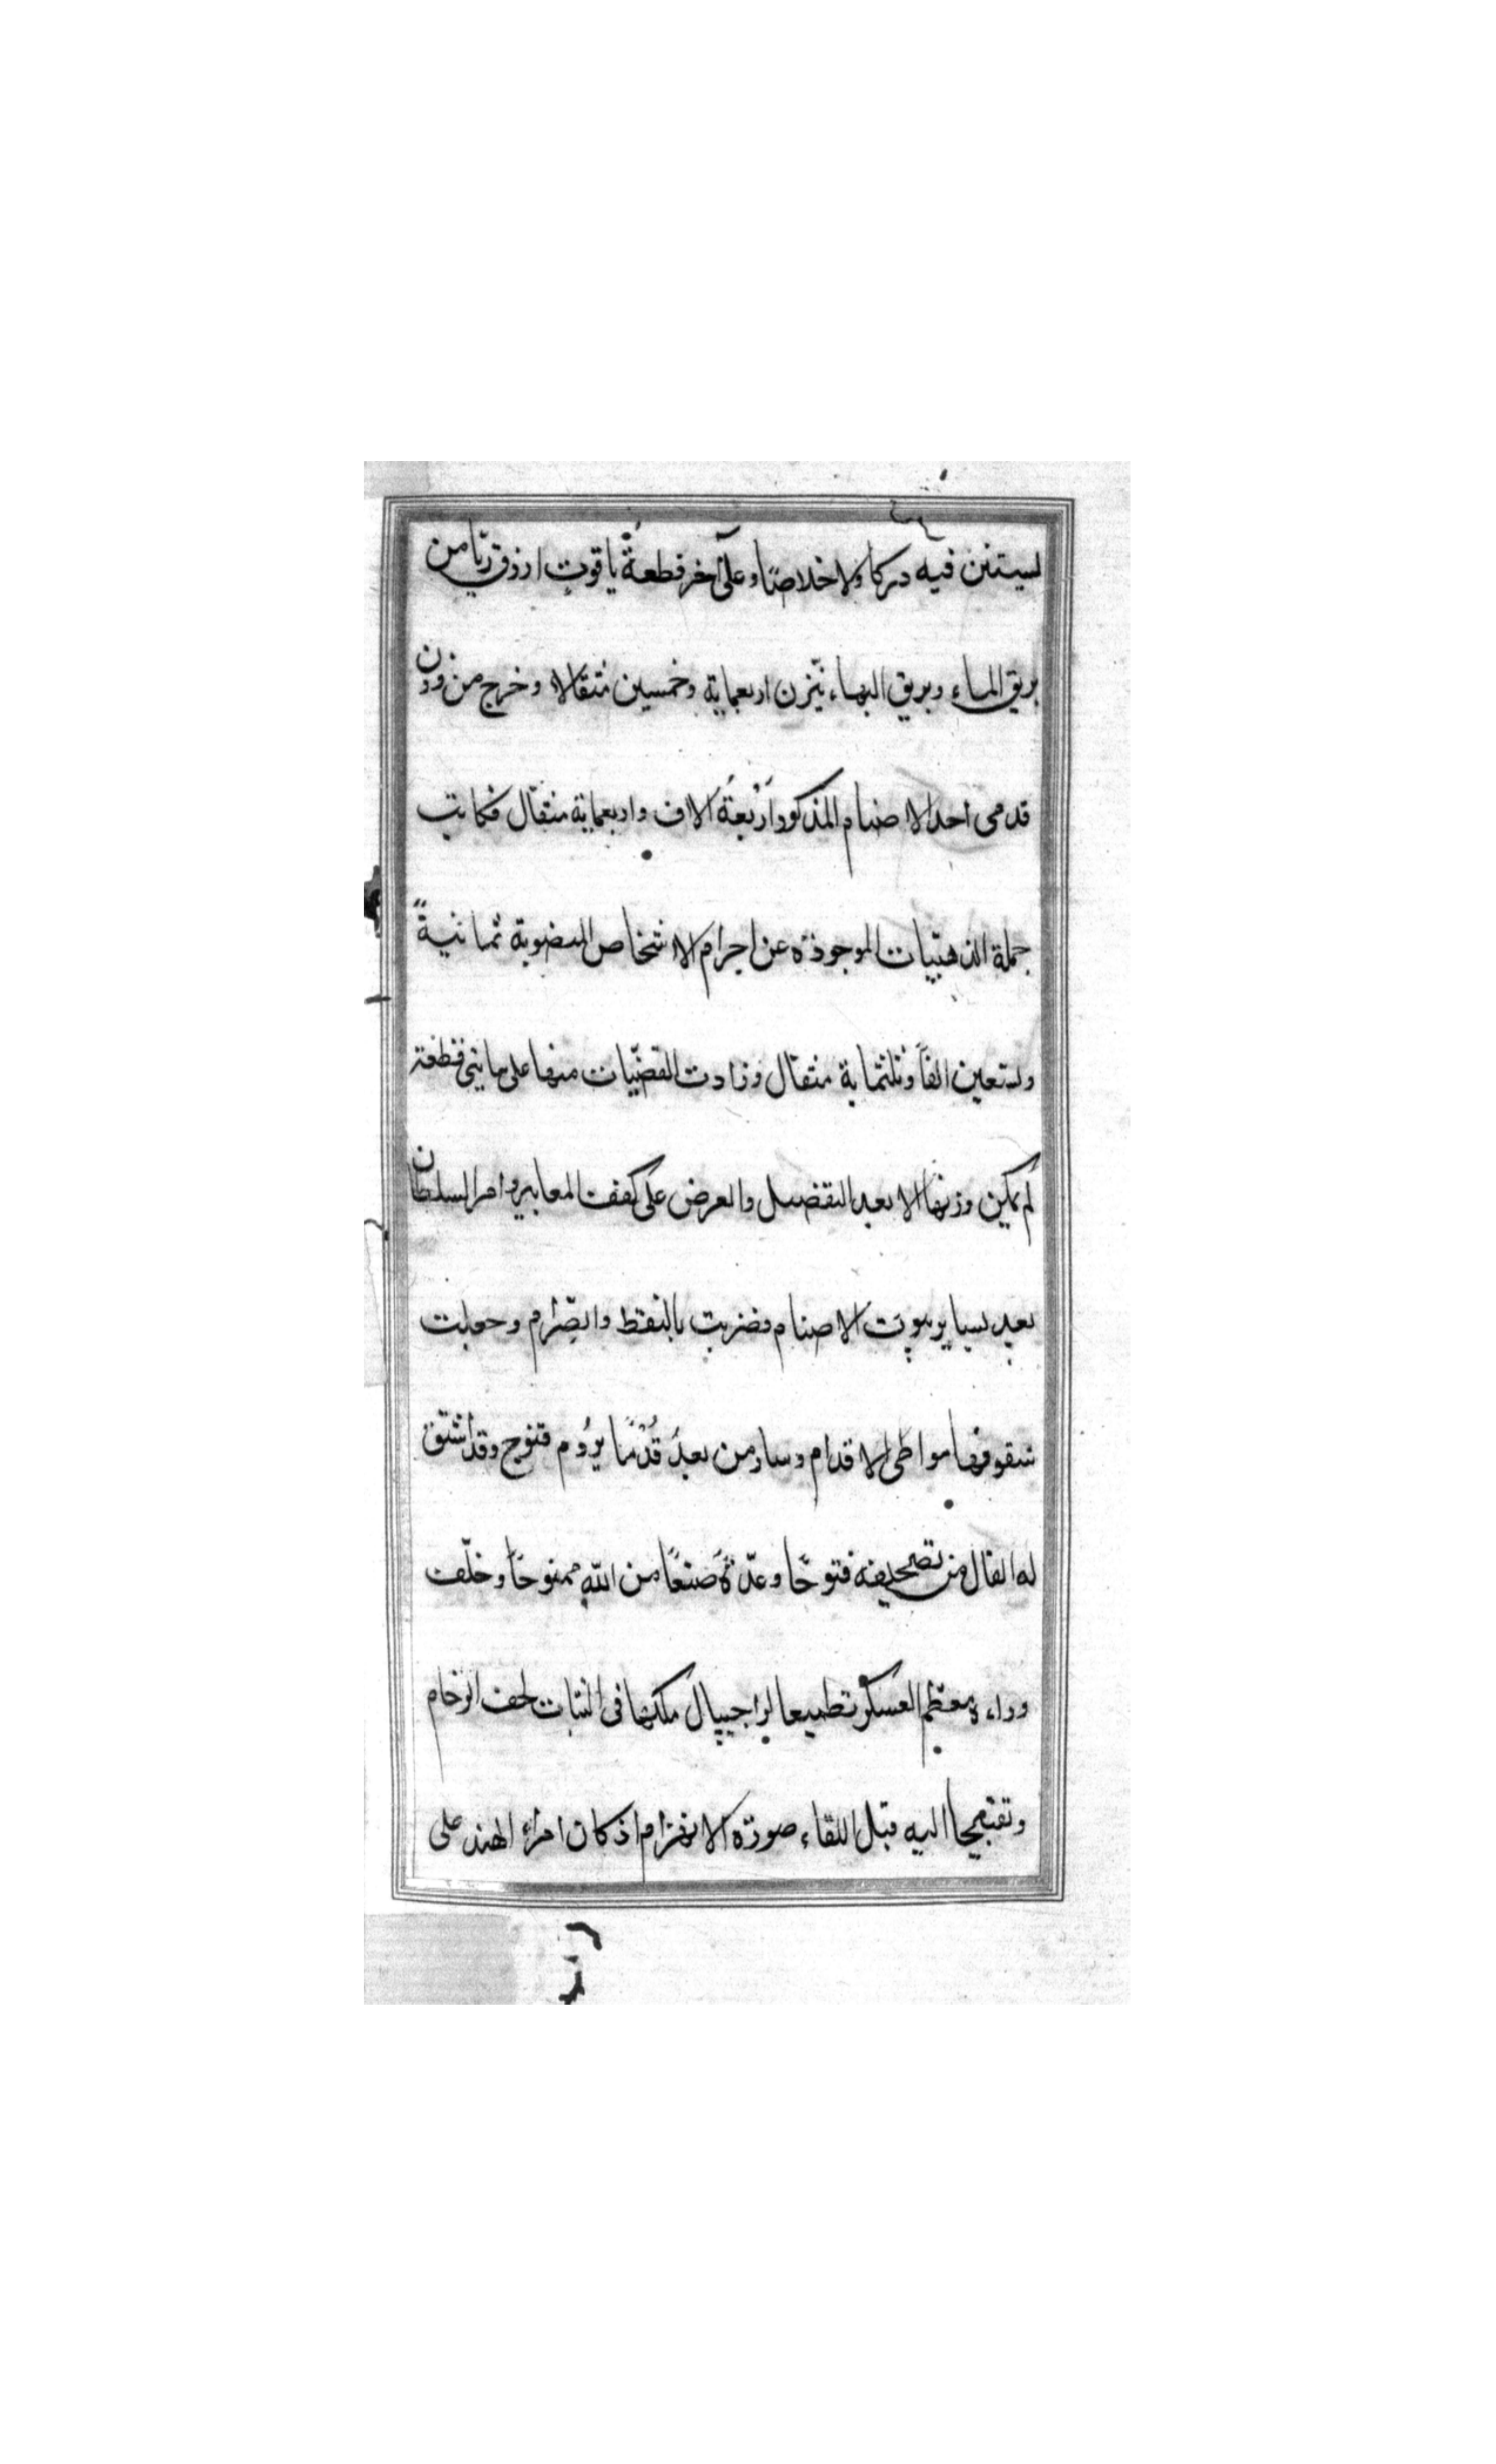 يستثن فيه دركا ولا خلاصًا وعلى آخر قطعةُ ياقوت ازرق ريّا من
بريق الماء وبريق البهاء يتّزن اربعماية وخمسين مثقالا وخرج من وزن
قدمى احد الاصنام المذكور اَرْبعةُ آلاف واربعماية مثقال فكانت
جملة الذهبيّات الموجودة عن اجرام الاشخاص المنصوبة ثمانيةً
وتسعين الفاً وثلثماية مثقال وزادت الفضّيّات منها على مايتى قطعة
لم يمكن وزنها الا بعد التفضيل والعرض على كفف المعايير وامر السلطان
بعد بساير بيوت الاصنام فضربت بالنفط والضّرام وجعلت
سقوفها مواطى الاقدام وسار من بعدُ قُدُمًا يرُوم قنوج وقد اشتق
له الفال من تصحيفه فتوحًا وعدّةً صنعًا من اللّه ممنوحًا وخلّف
وراءه معظم العسكر تطميعا لراجيپال ملكها فى الثبات لخف الزحام
وتقبيحا اليه قبل اللقاء صورة الانهزام اذ كان امراء الهند على